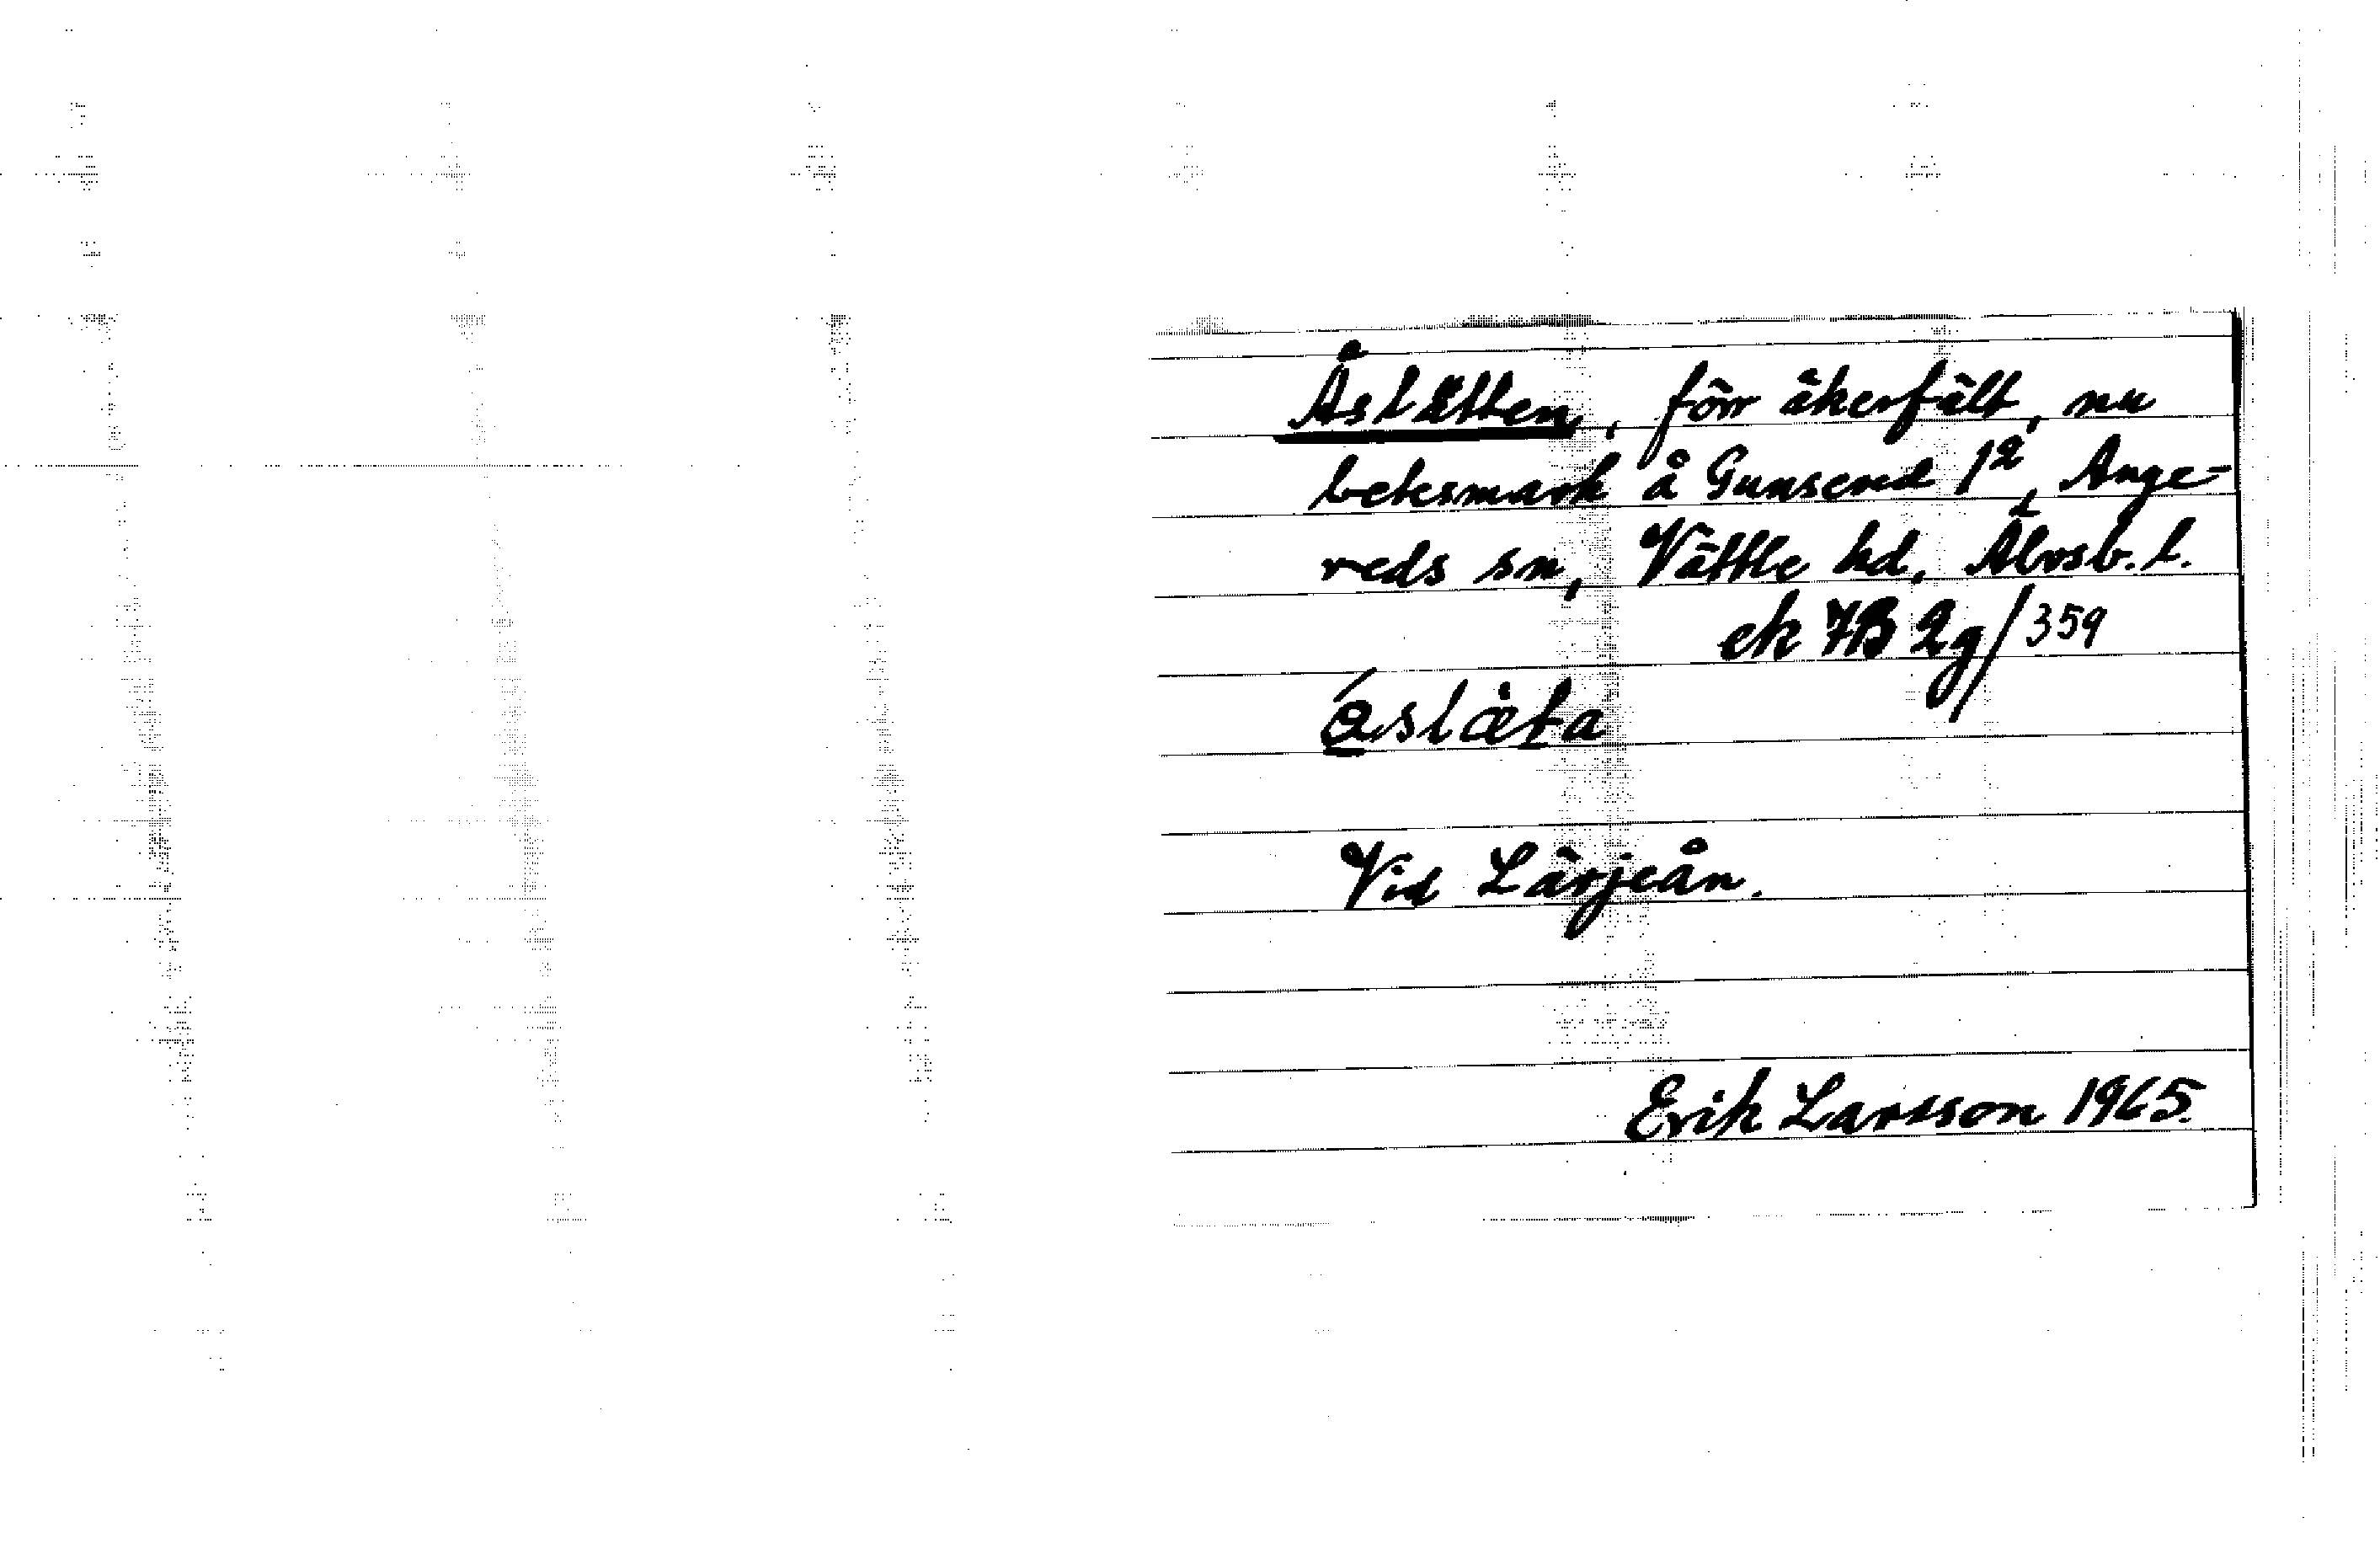 Åslätten, förr åkerfält, nu
betesmark å Gunsered 1², Ange-
reds sn, Vättle hd, Älvsb. l.
ek 7B 2g/359
áslæta
Vid Lärjeån.
Erik Larsson 1965.